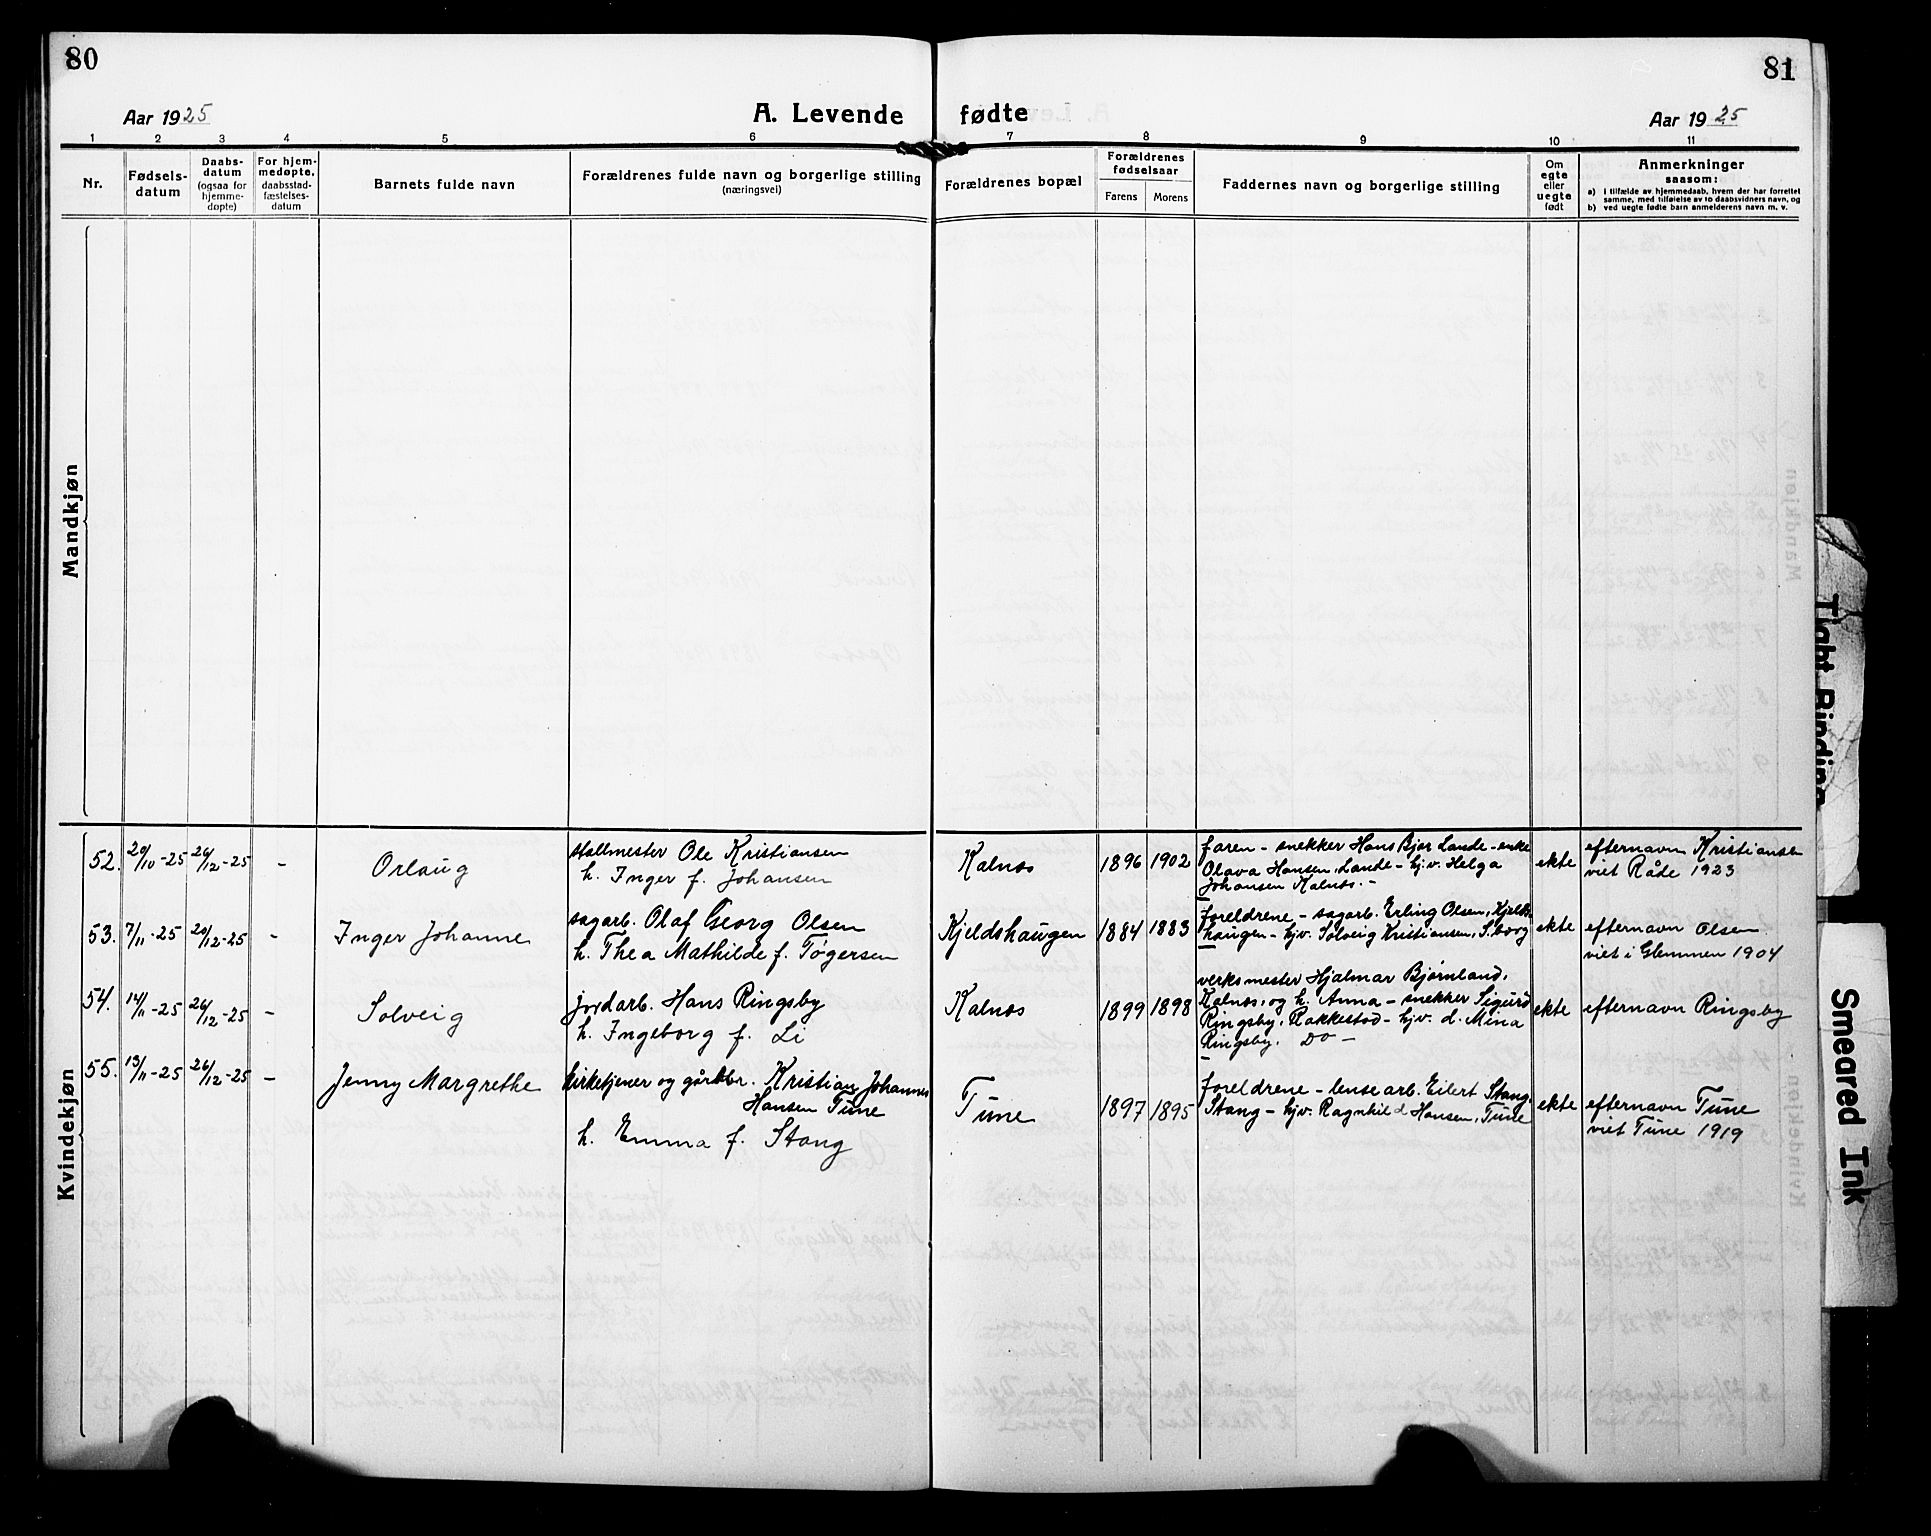 80
81
Aar 1925
A. Levende fødte
Aar 1925
1 2 3 4 5 6 7 8 9 10 11
Nr.
Fødsels-
datum
Daabs-
datum
(ogsaa for
hjemme-
døpte)
For hjem-
medøpte,
daabsstad-
fæstelses-
datum
Barnets fulde navn
Forældrenes fulde navn og borgerlige stilling
(næringsvei)
Forældrenes bopæl
Forældrenes
fødselsaar
Farens Morens
Faddernes navn og borgerlige stilling
Om
egte
eller
uegte
født
Anmerkninger
saasom:
a) i tilfælde av hjemmedaab, hvem der har forrettet
samme, med tilføielse av to daabsvidners navn, og
b) ved uegte fødte barn anmelderens navn m. v.
Mandkjøn
Kvindekjøn
52. 20/10-25 26/12-25 - Orlaug
stallmester Ole Kristiansen
h. Inger f. Johansen
Kalnes 1896 1902
faren - snekker Hans Bjer Lande - enke
Olava Hansen, Lande - hjv. Helga
Johansen Kalnes. -
ekte
efternavn Kristiansen
viet Råde 1923
53. 7/11-25 20/12-25 - Inger Johanne
sagarb. Olaf Georg Olsen
h. Thea Mathilde f. Tøgersen
Kjeldshaugen 1884 1883
foreldrene - sagarb. Erling Olsen, Kjelds-
haugen - hjv. Solveig Kristiansen, S.borg
ekte
efternavn Olsen
viet i Glemmen 1904
54. 14/11-25 26/12-25 - Solveig
jordarb. Hans Ringsby
h. Ingeborg f. Li
Kalnes 1899 1898
verksmester Hjalmar Bjørnland,
Kalnes, og h. Anna - snekker Sigurd
Ringsby, Rakkestad - hjv. d. Mina
Ringsby. Do -
ekte
efternavn Ringsby
55. 13/11-25 26/12-25 - Jenny Margrethe
kirketjener og gårdbr. Kristian Johannes
Hansen Tune
h. Emma f. Stang
Tune 1897 1895
foreldrene - lensearb. Eilert Stang,
Stang - hjv. Ragnhild Hansen, Tune
ekte
efternavn Tune
viet Tune 1919
Tight Binding
Smeared Ink